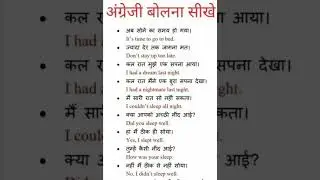 अंग्रेजी बोलना सीखे
अब सोने का समय हो गया।
It's time to go to bed.
ज्यादा देर तक जागना मत।
Don't stay up too late.
कल रात मुझे एक सपना आया।
I had a dream last night.
कल रात मैंने एक बुरा सपना देखा।
I had a nightmare last night.
मैं सारी रात सो नहीं सकता।
I couldn't sleep all night.
क्या आपको अच्छी नींद आई?
Did you sleep well.
हां मैं ठीक ही सोया।
Yes, I slept well.
तुम्हे कैसी नींद आई?
How was your sleep
मैं ठीक से नहीं सोया।
No, I didn't sleep well.
कल
I had a
कल रात
I had a
मैं सारी
I couldn't
क्या आ
आई?